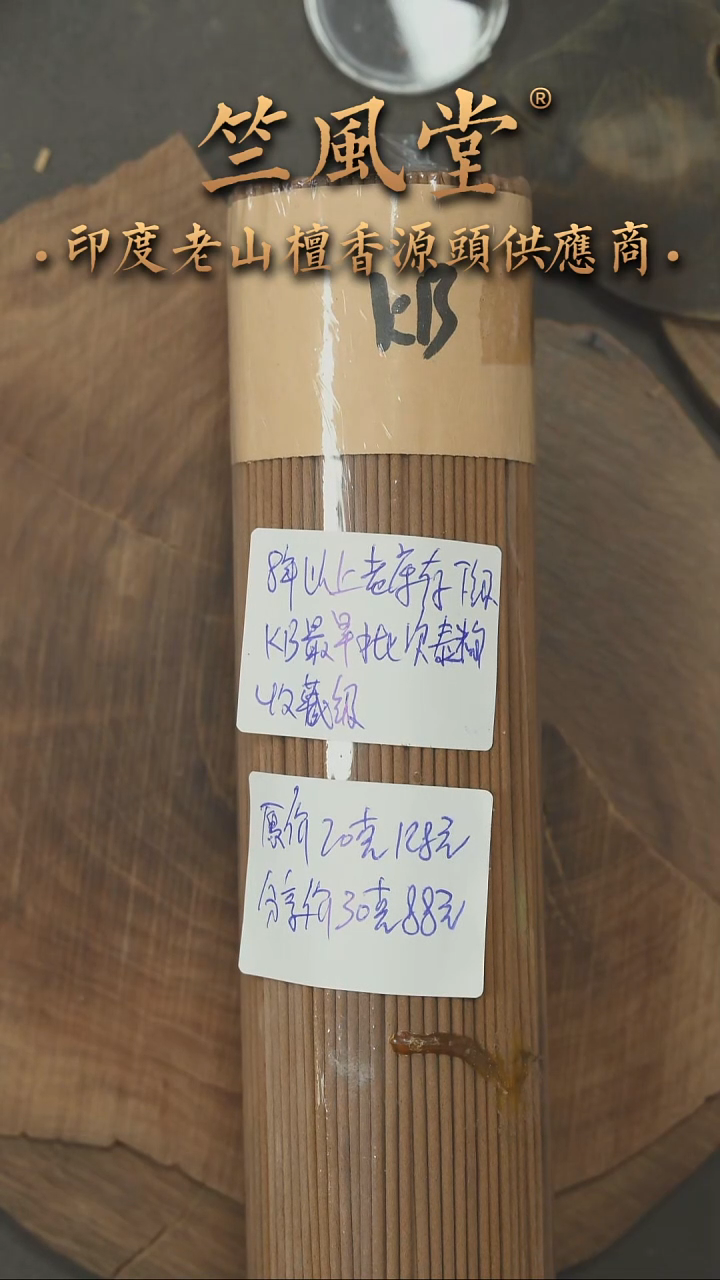 竺風堂®
·印度老山檀香源頭供應商·
KB
8年以上老库存下级
KB最早批次泰粉
收藏级
原价20克128元
分享价30克88元